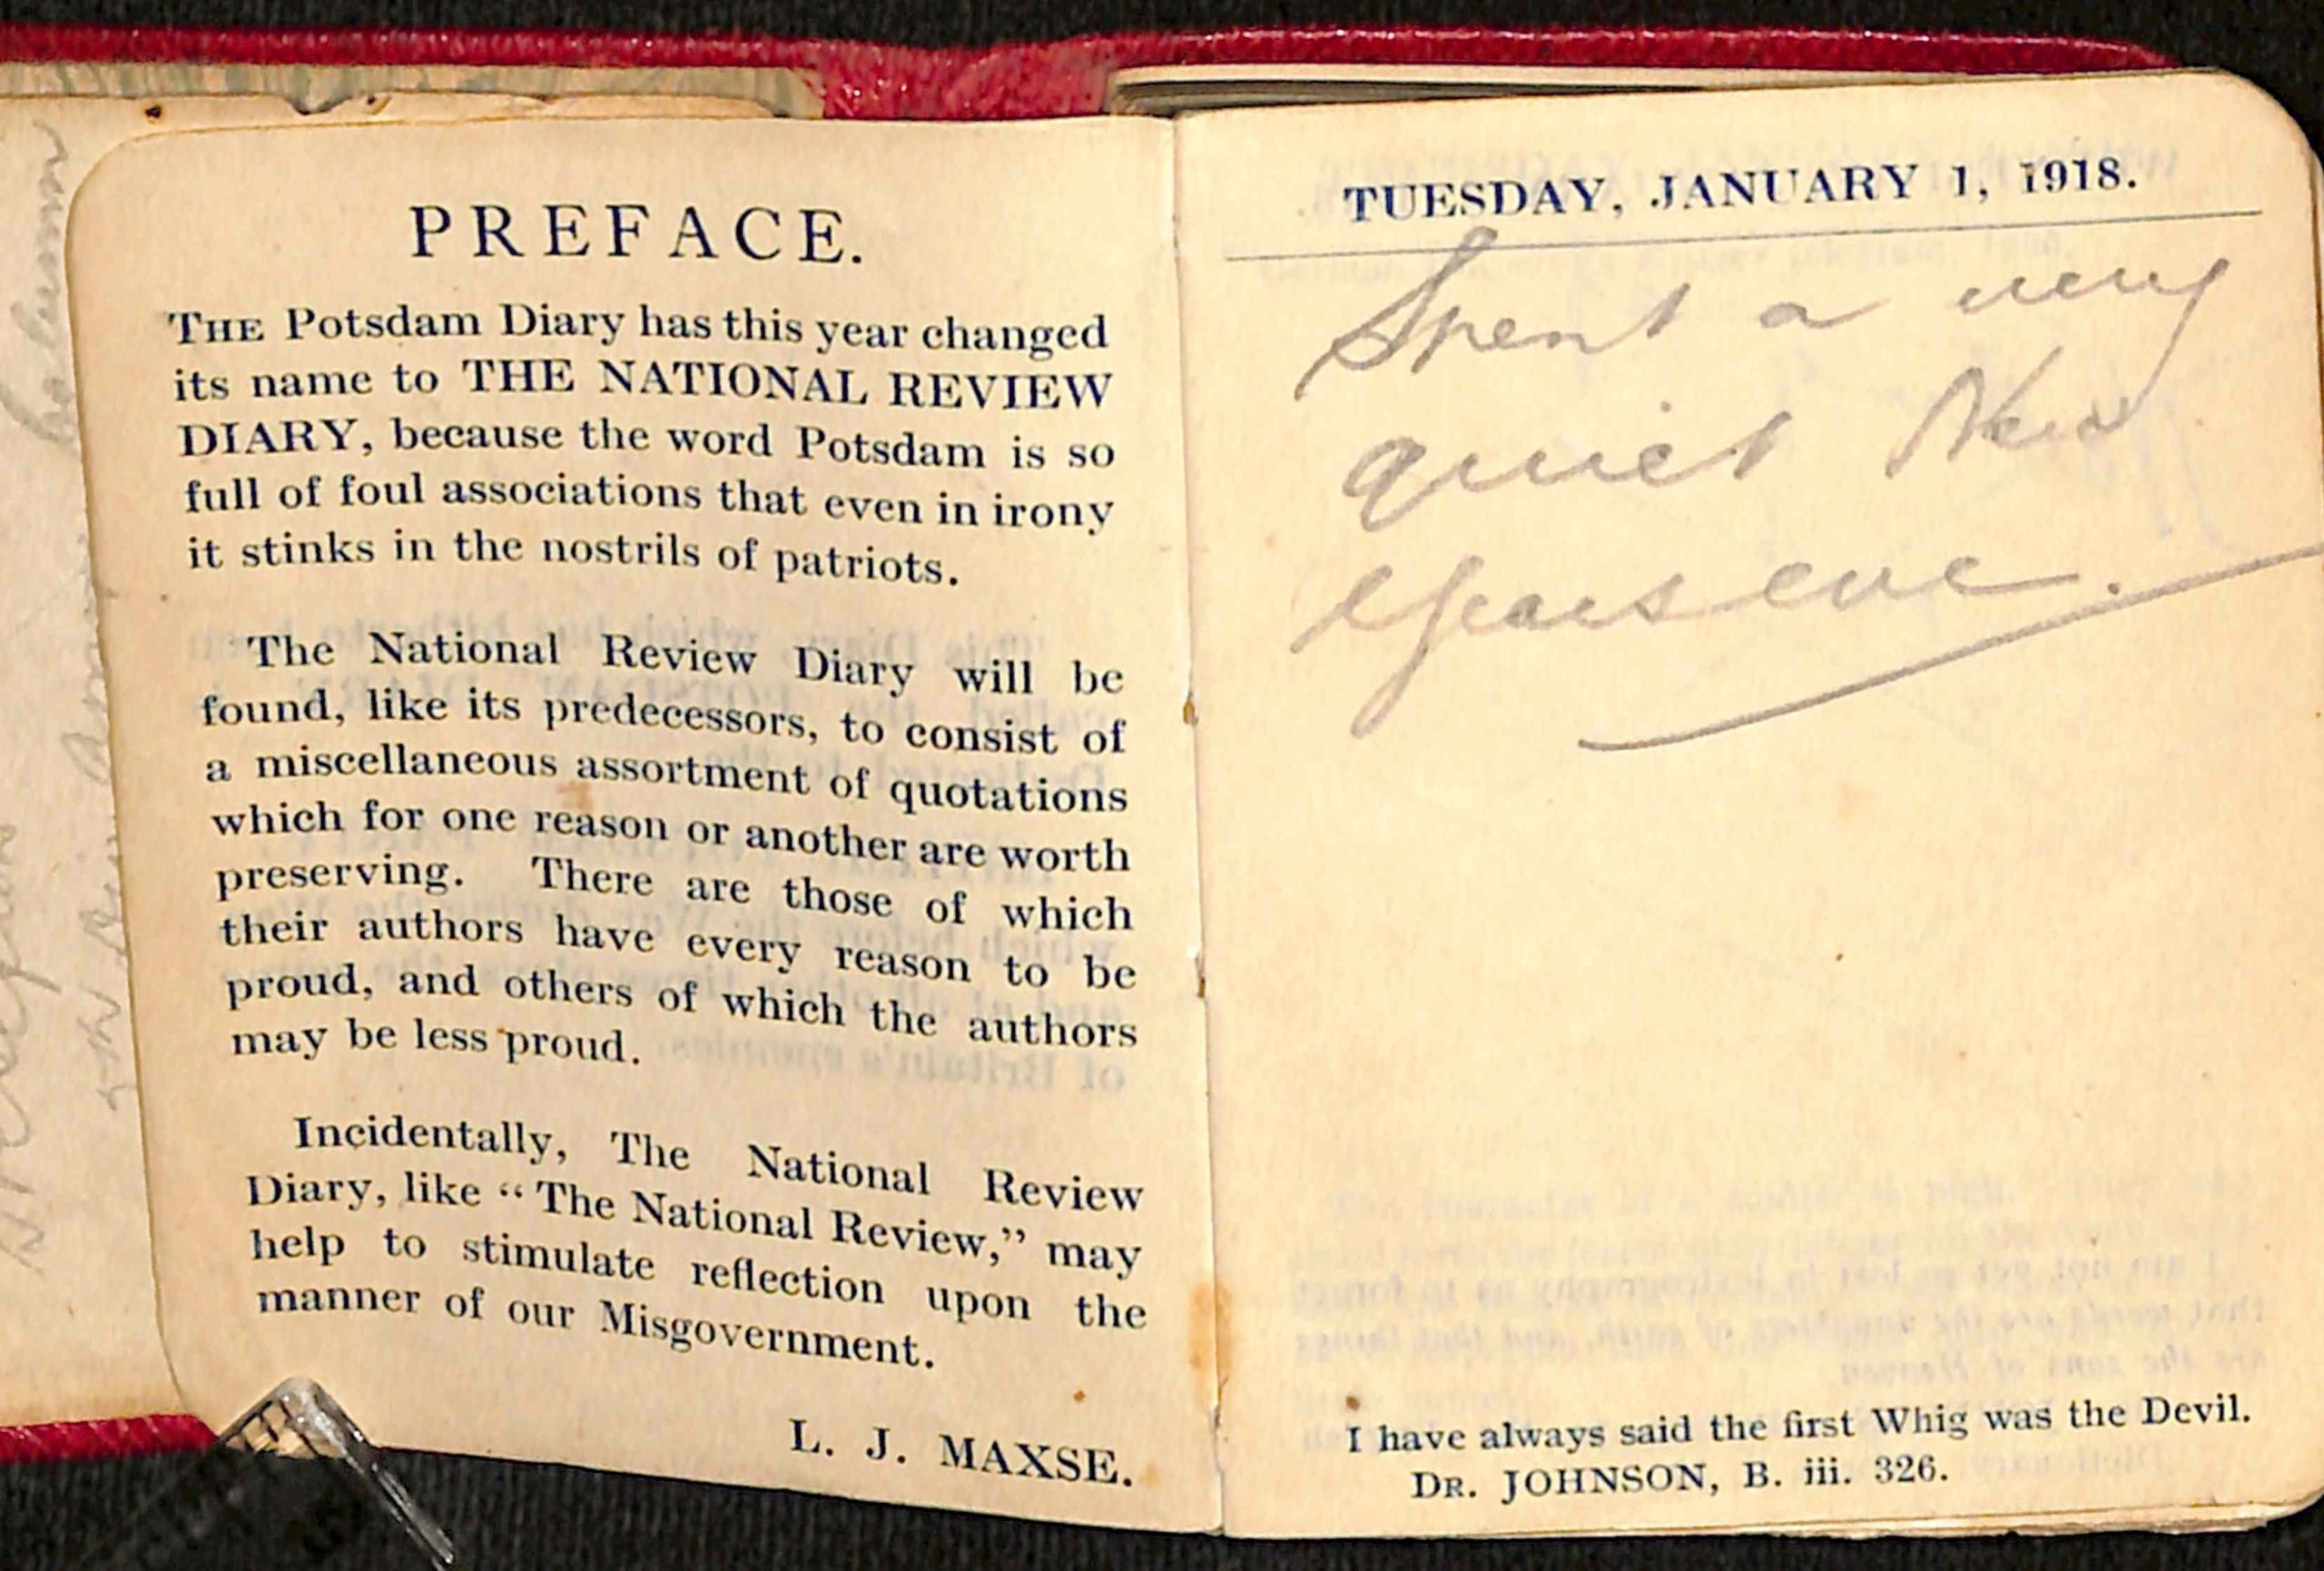 PREFACE.
THE Potsdam Diary has this year changed
its name to THE NATIONAL REVIEW
DIARY, because the word Potsdam is so
full of foul associations that even in irony
it stinks in the nostrils of patriots.
The National Review Diary will be
found, like its predecessors, to consist of
a miscellaneous assortment of quotations
which for one reason or another are worth
preserving. There are those of which
their authors have every reason to be
proud, and others of which the authors
may be less proud.
Incidentally, The National Review
Diary, like “The National Review,” may
help to stimulate reflection upon the
manner of our Misgovernment.
L. J. MAXSE.
TUESDAY, JANUARY 1, 1918.
Spent a very
quiet New
Years eve.
I have always said the first Whig was the Devil.
DR. JOHNSON, B. iii. 326.